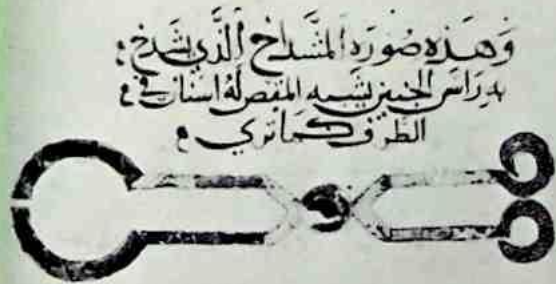 وهذه صورة المشداخ الذي يشدخ
به راس الجنين يشبه المقص له اسنان في
الطرف كما تري